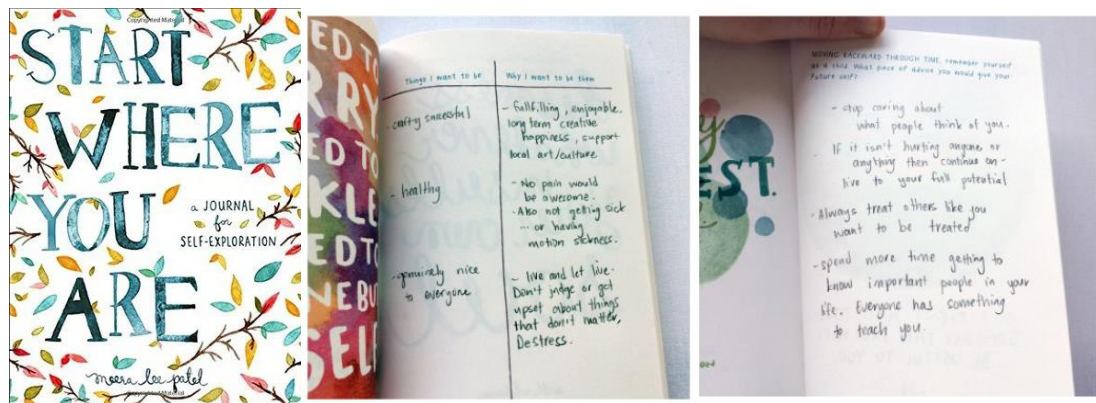 Copyrighted Material
START
WHERE
YOU
a JOURNAL
for
SELF-EXPLORATION
ARE
meera lee patel
Copyrighted Material
ED TO
RRY
ED TO
KLE
ED TO
NE BU
SELF
Things I want to be
- crafty successful
- healthy
- genuinely nice
to everyone
Why I want to be them
- fullfilling, enjoyable.
long term creative
happiness, support
local art/culture
- No pain would
be awesome.
- Also not getting sick
... or having
motion sickness.
- live and let live.
Don't judge or get
upset about things
that don't matter,
Destress.
EST.
MOVING BACKWARD THROUGH TIME, remember yourself
as a child. What piece of advice you would give your
future self?
- stop caring about
what people think of you.
- If it isn't hurting anyone or
anything then continue on -
live to your full potential
- Always treat others like you
want to be treated
- spend more time getting to
know important people in your
life. Everyone has something
to teach you.